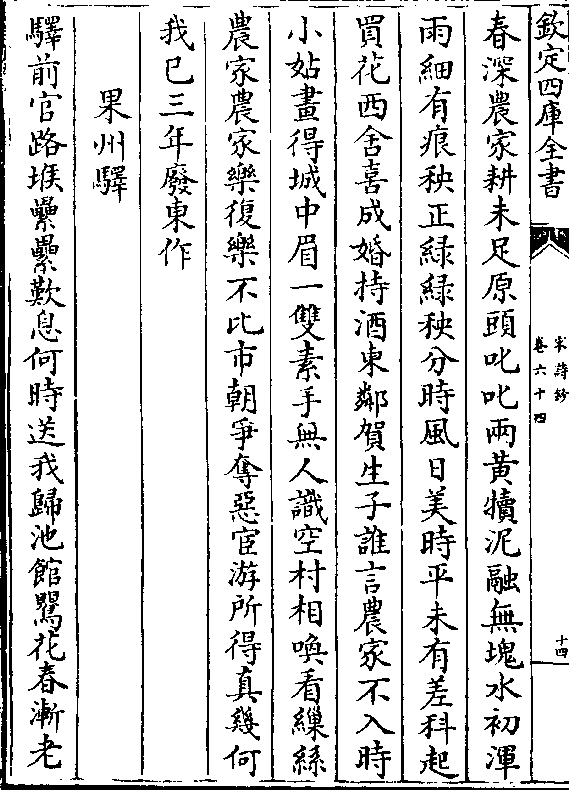 欽定四庫全書
宋詩鈔
卷六十四
十四
春深農家耕未足原頭叱叱兩黃犢泥融無塊水初渾
雨細有痕秧正緑緑秧分時風日美時平未有差科起
買花西舍喜成婚持酒東鄰賀生子誰言農家不入時
小姑畫得城中眉一雙素手無人識空村相喚看繅絲
農家農家樂復樂不比市朝爭奪惡宦游所得真幾何
我已三年廢東作
果州驛
驛前官路堠纍纍歎息何時送我歸池館鶯花春漸老